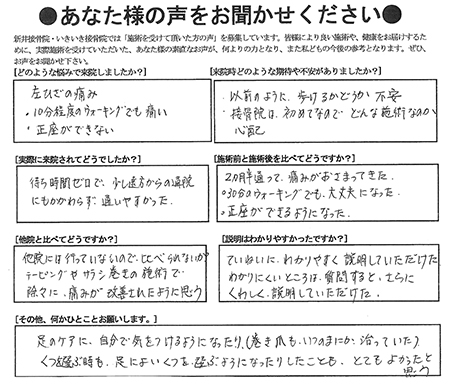 ●あなた様の声をお聞かせください●
新井接骨院・いきいき接骨院では「施術を受けて頂いた方の声」を募集しています。皆様により良い施術や、健康をお届けするた
めに、実際施術を受けていただいた、あなた様の素直なお声が、何よりの力となり、また私どもの今後の参考となります。ぜひ、
お声をお聞かせ下さい。
【どのような悩みで来院しましたか?】
左ひざの痛み
・10分程度のウォーキングでも痛い
・正座ができない
【来院時どのような期待や不安がありましたか?】
・以前のように、歩けるかどうか不安
・接骨院は、初めてなので どんな施術なのか
心配
【実際に来院されてどうでしたか?】
待ち時間ゼロで、少し遠方からの通院
にもかかわらず 通いやすかった。
【施術前と施術後を比べてどうですか?】
2カ月半通って、痛みがおさまってきた。
・30分のウォーキングでも、大丈夫になった。
・正座ができるようになった。
【他院と比べてどうですか?】
他院には行っていないので、比べられないが
テーピングやサラシ巻きの施術で
徐々に、痛みが改善されたように思う
【説明はわかりやすかったですか?】
ていねいに、わかりやすく説明していただけた
わかりにくいところは、質問すると、さらに
くわしく、説明していただけた。
【その他、何かひとことお願いします。】
足のケアに、自分で気をつけるようになったり、(巻き爪も、いつのまにか、治っていた)
くつを選ぶ時も、足によいくつを、選ぶようになったりしたことも、とてもよかったと
思う